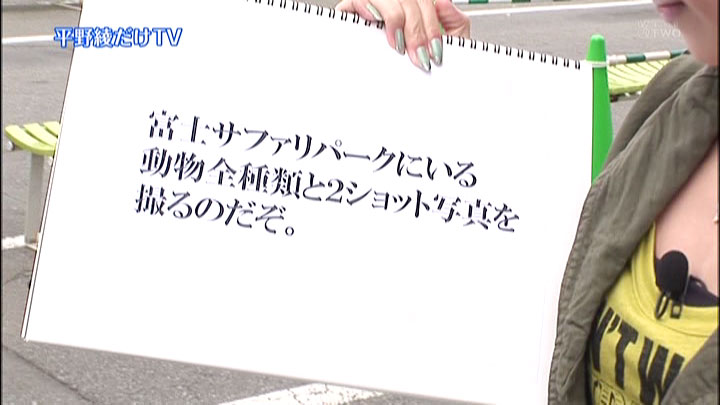 平野綾だけTV
富士サファリパークにいる
動物全種類と2ショット写真を
撮るのだぞ。
N'TW